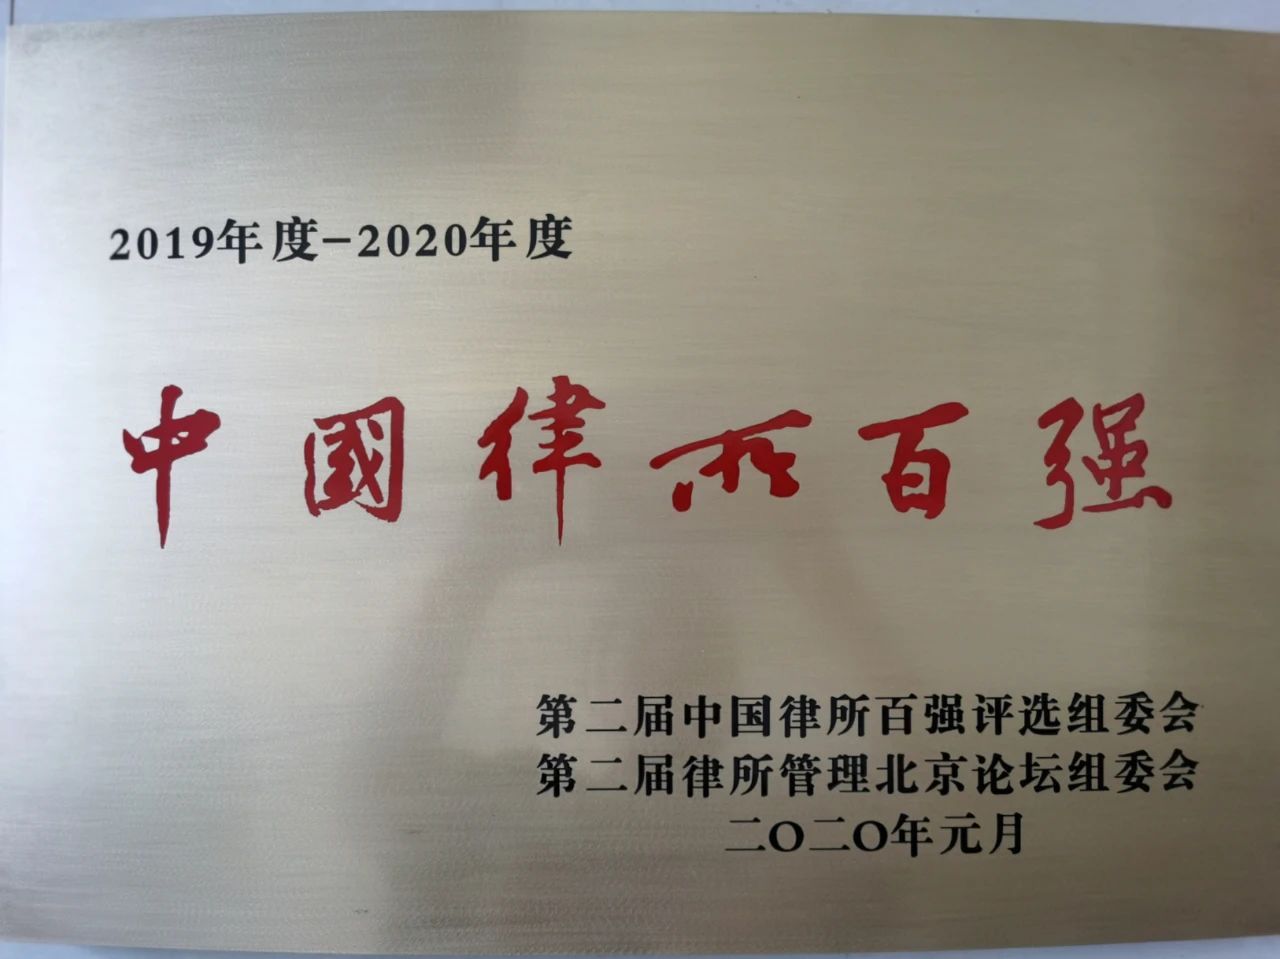 2019年度-2020年度
中國律所百强
第二届中国律所百强评选组委会
第二届律所管理北京论坛组委会
二〇二〇年元月